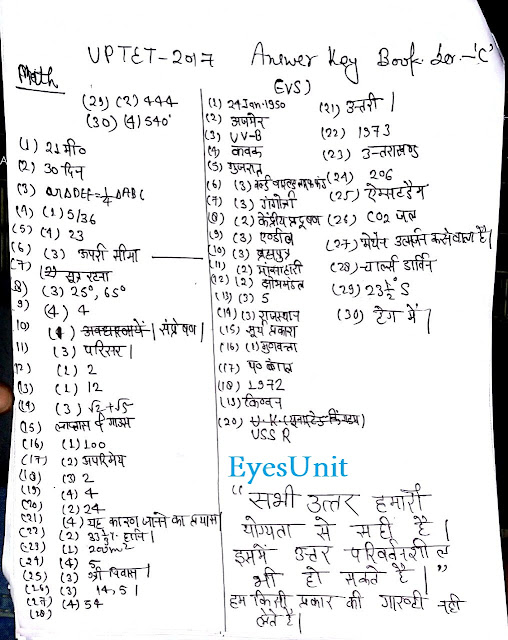 UPTET-2017 Answer Key Book. Ser.-'C'
Math
(29) (2) 444
(30) (4) 540°
(1) 21 मी०
(2) 30 दिन
(3) ar ΔDEF = 1/4 ΔABC
(4) (1) 5/36
(5) (4) 23
(6) (3) ऊपरी सीमा
(7) (2) सूत्र रटना
(8) (3) 25°, 65°
(9) (4) 4
(10) संप्रेषण |
(11) (3) परिसर |
(12) (1) 2
(13) (1) 12
(14) (3) √2+√5
(15) लाप्लास व गाउस
(16) (1) 100
(17) (2) अपरिमेय
(18) (3) 2
(19) (4) 4
(20) (2) 24
(21) (4) यह कारण जानने का प्रयास |
(22) (2) 33 1/3 % हानि |
(23) (1) 200m²
(24) (4) 5
(25) (3) श्री निवास |
(26) (3) 14, 5 |
(27) (4) 54
(28)
EVS)
(1) 24 Jan-1950
(2) अजमेर
(3) UV-B
(4) कवक
(5) गुजरात
(6) (3)
(7) (3) गंगोत्री
(8) (2) केंद्रीय प्रदूषण
(9) (3) एण्डीज
(10) (3) ब्रह्मपुत्र
(11) (2) मांसाहारी
(12) (2) क्षोभमंडल
(13) (3) 5
(14) (3) राजस्थान
(15) सूर्य प्रकाश
(16) (1) गुणवत्ता
(17) प० बंगाल
(18) 1972
(19) किण्वन
(20) U.K. (यूनाइटेड किंगडम)
USSR
(21) उत्तरी |
(22) 1973
(23) उत्तराखण्ड
(24) 206
(25) ऐम्सटर्डम
(26) CO2 जल
(27) मीथेन उत्सर्जन करने वाला है |
(28) चार्ल्स डार्विन
(29) 23 1/2° S
(30) टैग में |
EyesUnit
"सभी उत्तर हमारी
योग्यता से सही है |
इसमें उत्तर परिवर्तनशील
भी हो सकते है | "
हम किसी प्रकार की गारण्टी नही
लेते है |